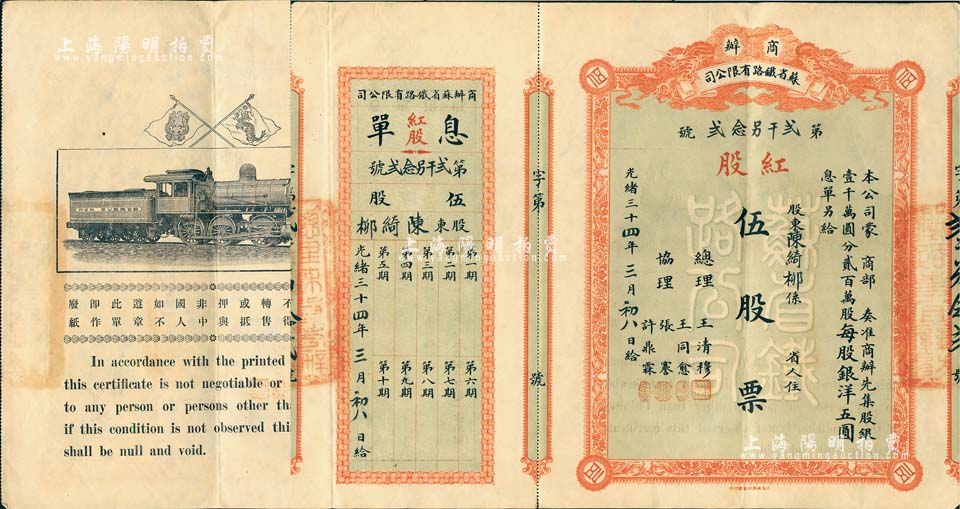 上海陽明拍賣
www.yangmingauction.com
商辦
蘇省鐵路有限公司
第弍千另念弍號
紅股
本公司蒙 商部 奏准商辦先集股銀
壹千萬圓分貳百萬股每股銀洋五圓
息單另給
股東陳綺桞係 省 人住
伍股票
總理 王清穆
協理 王同愈
張謇
許鼎霖
光緒三十四年三月初八日給
字第 號
商辦蘇省鐵路有限公司
紅股
息單
第弍千另念弍號
伍股
股東陳綺桞
第一期
第二期
第三期
第四期
第五期
第六期
第七期
第八期
第九期
第十期
光緒三十四年三月初八日給
不轉或押非國如遊此卽廢
得售抵與中人不章單作紙
In accordance with the printed
this certificate is not negotiable or
to any person or persons other tha
if this condition is not observed thi
shall be null and void.
上海陽明拍賣
www.yangmingauction.com
上海陽明拍賣
www.yangmingauction.com